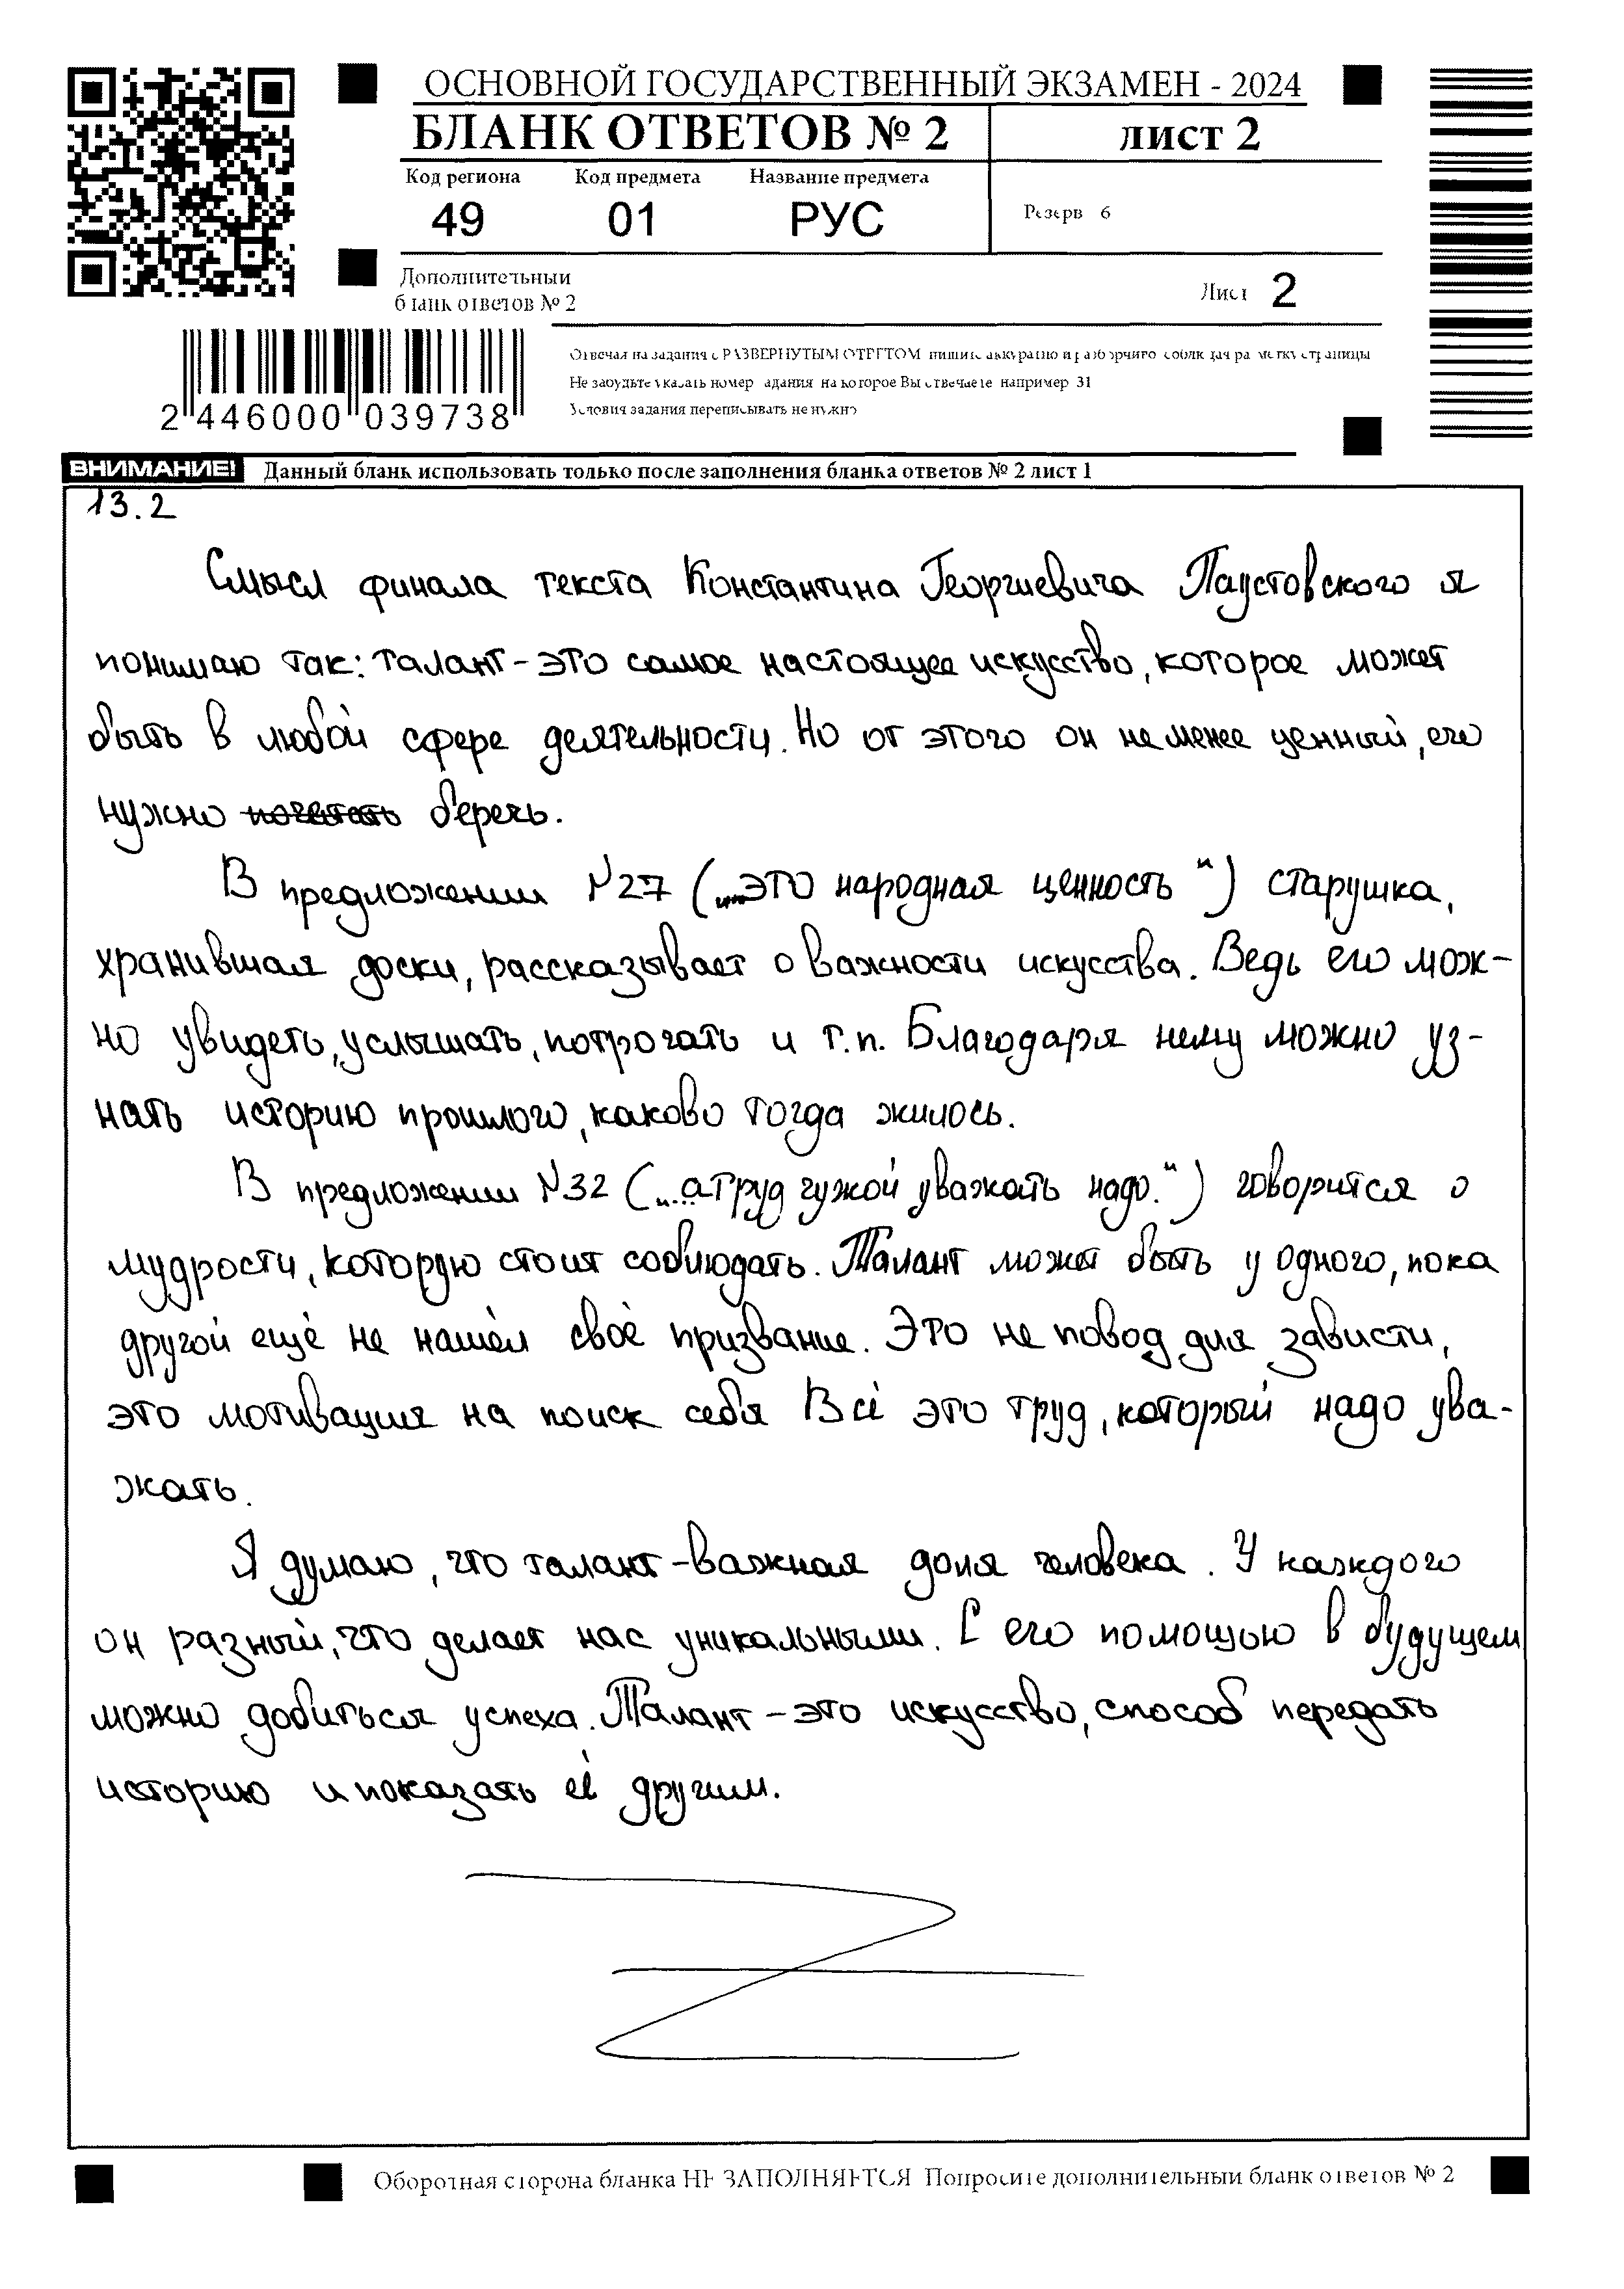 ОСНОВНОЙ ГОСУДАРСТВЕННЫЙ ЭКЗАМЕН - 2024
БЛАНК ОТВЕТОВ № 2 лист 2
Код региона Код предмета Название предмета
49 01 РУС
Резерв 6
Дополнительный
бланк ответов № 2
Лист 2
2 446000 039738
Отвечая на задания с РАЗВЕРНУТЫМ ОТВЕТОМ пишите аккуратно и разборчиво соблюдая разметку страницы
Не забудьте указать номер задания на которое Вы отвечаете например 31
Условия задания переписывать не нужно
ВНИМАНИЕ! Данный бланк использовать только после заполнения бланка ответов № 2 лист 1
13.2
Смысл финала текста Константина Георгиевича Паустовского я
понимаю так: талант-это самое настоящее искусство, которое может
быть в любой сфере деятельности. Но от этого он не менее ценный, его
нужно беречь.
В предложении №27 („...это народная ценность“) старушка,
хранившая доски, рассказывает о важности искусства. Ведь его мож-
но увидеть, услышать, потрогать и т.п. Благодаря нему можно уз-
нать историю прошлого, каково тогда жилось.
В предложении №32 („...а труд чужой уважать надо.“) говорится о
мудрости, которую стоит соблюдать. Талант может быть у одного, пока
другой ещё не нашёл своё призвание. Это не повод для зависти,
это мотивация на поиск себя Всё это труд, который надо ува-
жать.
Я думаю, что талант-важная доля человека. У каждого
он разный, что делает нас уникальными. С его помощью в будущем
можно добиться успеха. Талант-это искусство, способ передать
историю и показать её другим.
Оборотная сторона бланка НЕ ЗАПОЛНЯЕТСЯ Попросите дополнительный бланк ответов № 2